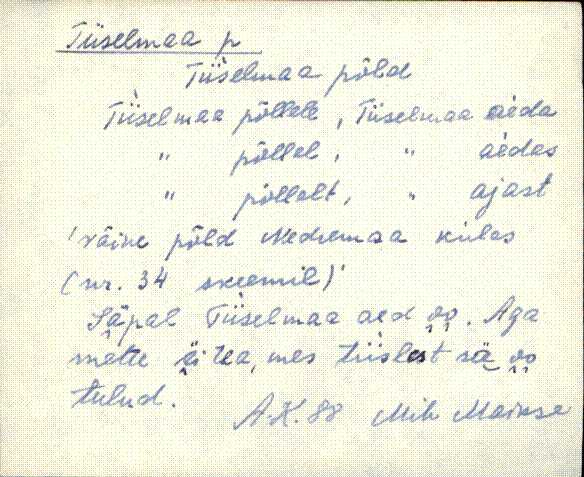 Tiiselmaa p
Tiiselmaa põld
Tiiselmaa põllele, Tiiselmaa aeda
" põllel, " aedas
" põllelt, " ajast
'väine põld Nedremaa külas
(nr. 34 skeemil)'
Säpal Tiiselmaa aed oo. Aga
mette äi tea, mes tiislest sä oo
tulud.
A.K. 88 Mih